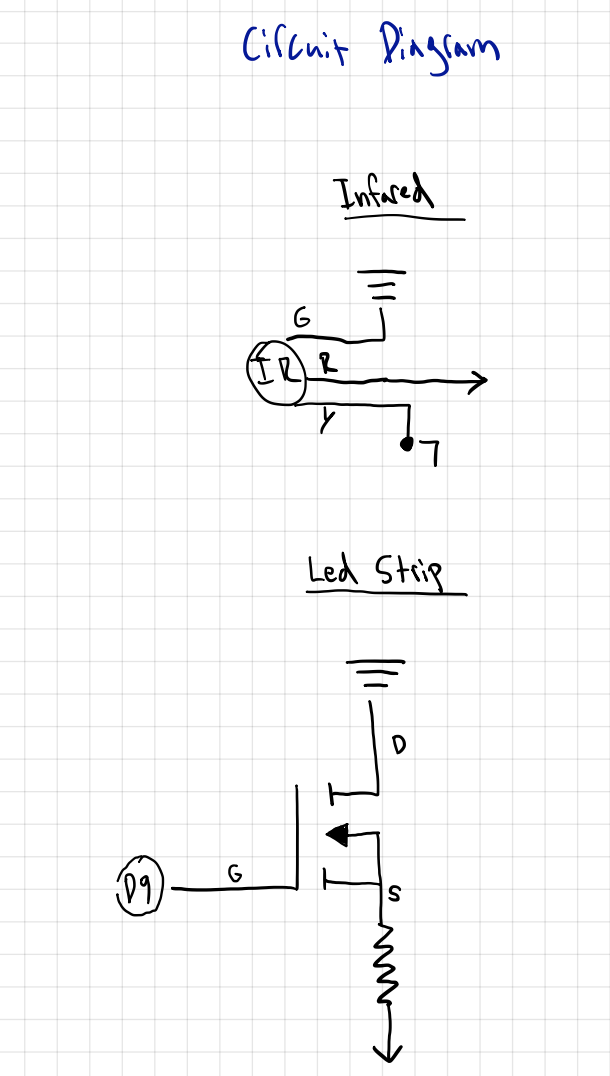 Circuit Diagram
Infared
G
IR
R
Y
7
Led Strip
D
D9
G
S